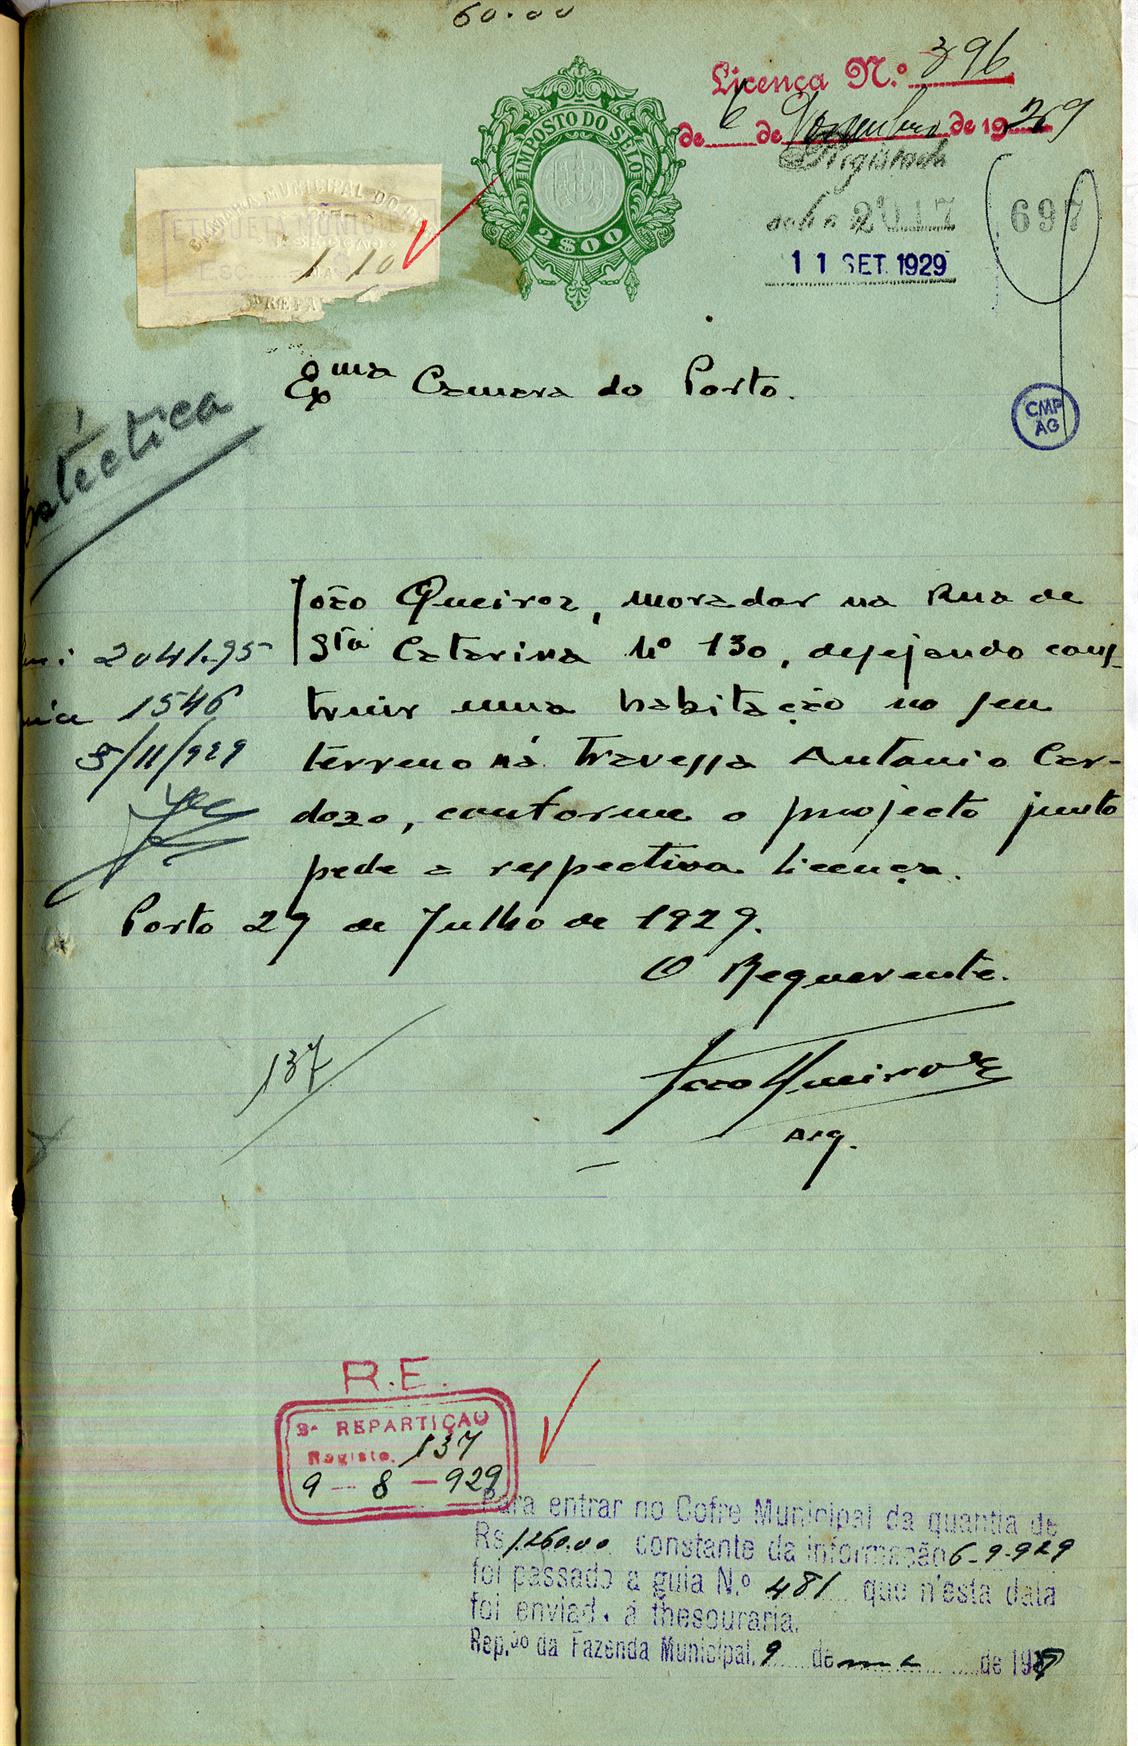 60.00
Licença N.º 396
de 6 de Novembro de 1929
IMPOSTO DO SELO
2$00
Registado
sob o nº 2017
697
11 SET. 1929
CAMARA MUNICIPAL DO
ETIQUETA MUNICIPAL
1 10
Exma Camara do Porto.
CMP
AG
Estectica
João Queiroz, morador na Rua de
Sta Catarina Nº 130, desejando cons-
truir uma habitação no seu
terreno na Travessa Antonio Car-
dozo, conforme o projecto junto
pede a respectiva licença.
2041.95
1546
5/11/929
Porto 27 de Julho de 1929.
O Requerente.
João Queiroz
Arq.
137
R.E.
3ª REPARTIÇÃO
Registo. 137
9-8-929
Para entrar no Cofre Municipal da quantia de
Rs 1.260.00 constante da informação 6-9-929
foi passado a guia N.º 481 que n'esta data
foi enviad. á thesouraria.
Rep.ão da Fazenda Municipal, 9 de de 1929